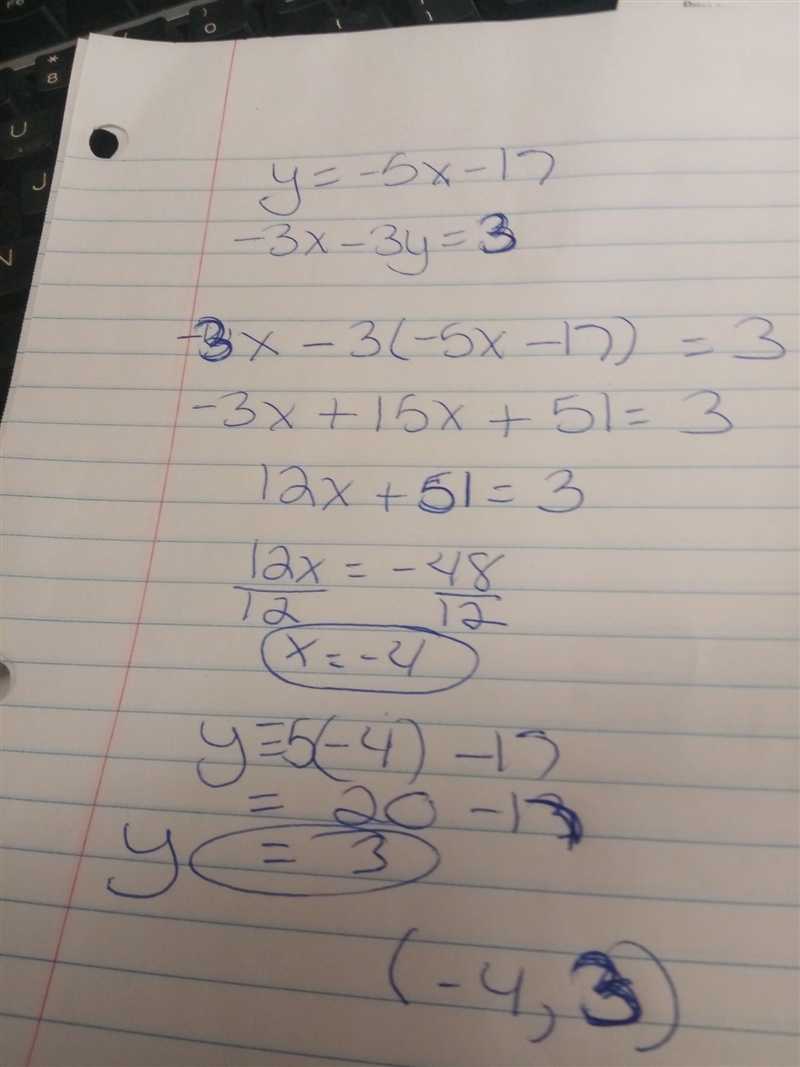 y = -5x - 17
-3x - 3y = 3
-3x - 3(-5x - 17) = 3
-3x + 15x + 51 = 3
12x + 51 = 3
12x = -48
12 12
x = -4
y = 5(-4) - 17
= 20 - 17
y = 3
(-4, 3)
* 8
U
J
N
0